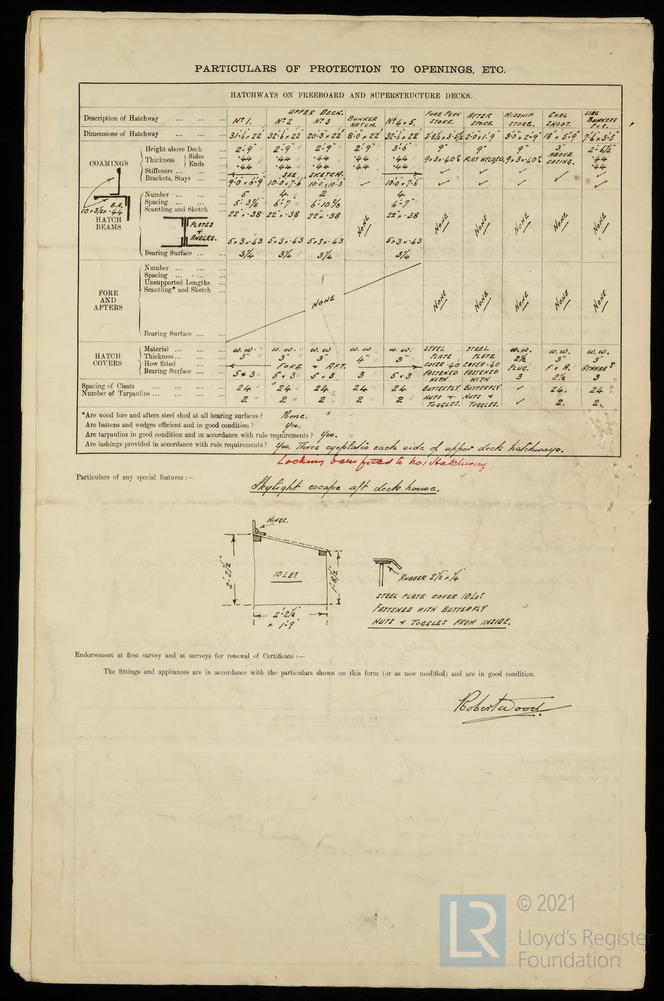 PARTICULARS OF PROTECTION TO OPENINGS, ETC.
HATCHWAYS ON FREEBOARD AND SUPERSTRUCTURE DECKS.
UPPER DECK.
Description of Hatchway ... Nº 1. Nº 2 Nº 3 BUNKER HATCH. Nº 4 & 5. FORE PEAK STORE. AFTER STORE. MIDSHIP STORE. COAL SHOOT. SIDE BUNKERS P & S.
Dimensions of Hatchway ...
COAMINGS
Height above Deck 2'-9" 2'-9" 2'-9" 2'-9" 3'-6" 9" 9" 9" 3" ABOVE CASING.
Thickness { Sides .44 .44 .44 .44 .44 FLAT WELDED .44
Ends .44 .44 .44 .44 .44 .44
Stiffeners ... SEE SKETCH.
Brackets, Stays ... 10.0 x 7.6 10.0 x 10.3 ✓ 10.0 x 7.6 ✓ ✓ ✓ ✓
HATCH BEAMS
Number ... 5 4 2
Spacing ... 6'-7" 6'-7"
Scantling and Sketch 22" x .38 22" x .38 22" x .38 NONE 22" x .38 NONE NONE NONE NONE NONE
PLATES & ANGLES.
5 x 3 x .43 5 x 3 x .43 5 x 3 x .43 5 x 3 x .43
Bearing Surface ... 3¼ 3¼ 3¼ 3¼
FORE AND AFTERS
Number ...
Spacing ...
Unsupported Lengths ...
Scantling* and Sketch ...
NONE NONE NONE NONE NONE NONE
Bearing Surface ...
HATCH COVERS
Material ... W.W. W.W. W.W. W.W. W.W. STEEL PLATE COVER .40 FASTENED WITH BUTTERFLY NUTS & TOGGLES. STEEL PLATE COVER .40 FASTENED WITH BUTTERFLY NUTS & TOGGLES. W.W. W.W. W.W.
Thickness ... 3" 3" 3" 4" 3" 2½ 3" 3"
How fitted FORE & AFT. PLUG. F & A.
Bearing Surface ... 5 & 3 5 x 3 5 x 3 3 5 x 3 3 2½ 3
Spacing of Cleats 24 24 24 24 24 ✓ 24. 24
Number of Tarpaulins ... 2 2 2 2 2 ✓ 2. 2.
*Are wood fore and afters steel shod at all bearing surfaces ? None.
Are battens and wedges efficient and in good condition ? Yes.
Are tarpaulins in good condition and in accordance with rule requirements ? Yes.
Are lashings provided in accordance with rule requirements ? Yes. Three eyeplates each side of upper deck hatchways.
Locking bars fitted to No 1 Hatchway
Particulars of any special features :—
Skylight escape aft deck house.
HINGE.
2'-2½"
10 LBS
2'-2½"
x 1'-9"
RUBBER 2½ x ¼
STEEL PLATE COVER 10 LBS
FASTENED WITH BUTTERFLY
NUTS & TOGGLES FROM INSIDE.
Endorsement at first survey and at surveys for renewal of Certificate :—
The fittings and appliances are in accordance with the particulars shown on this form (or as now modified) and are in good condition.
Robert Wood.
LR
© 2021
Lloyd's Register
Foundation